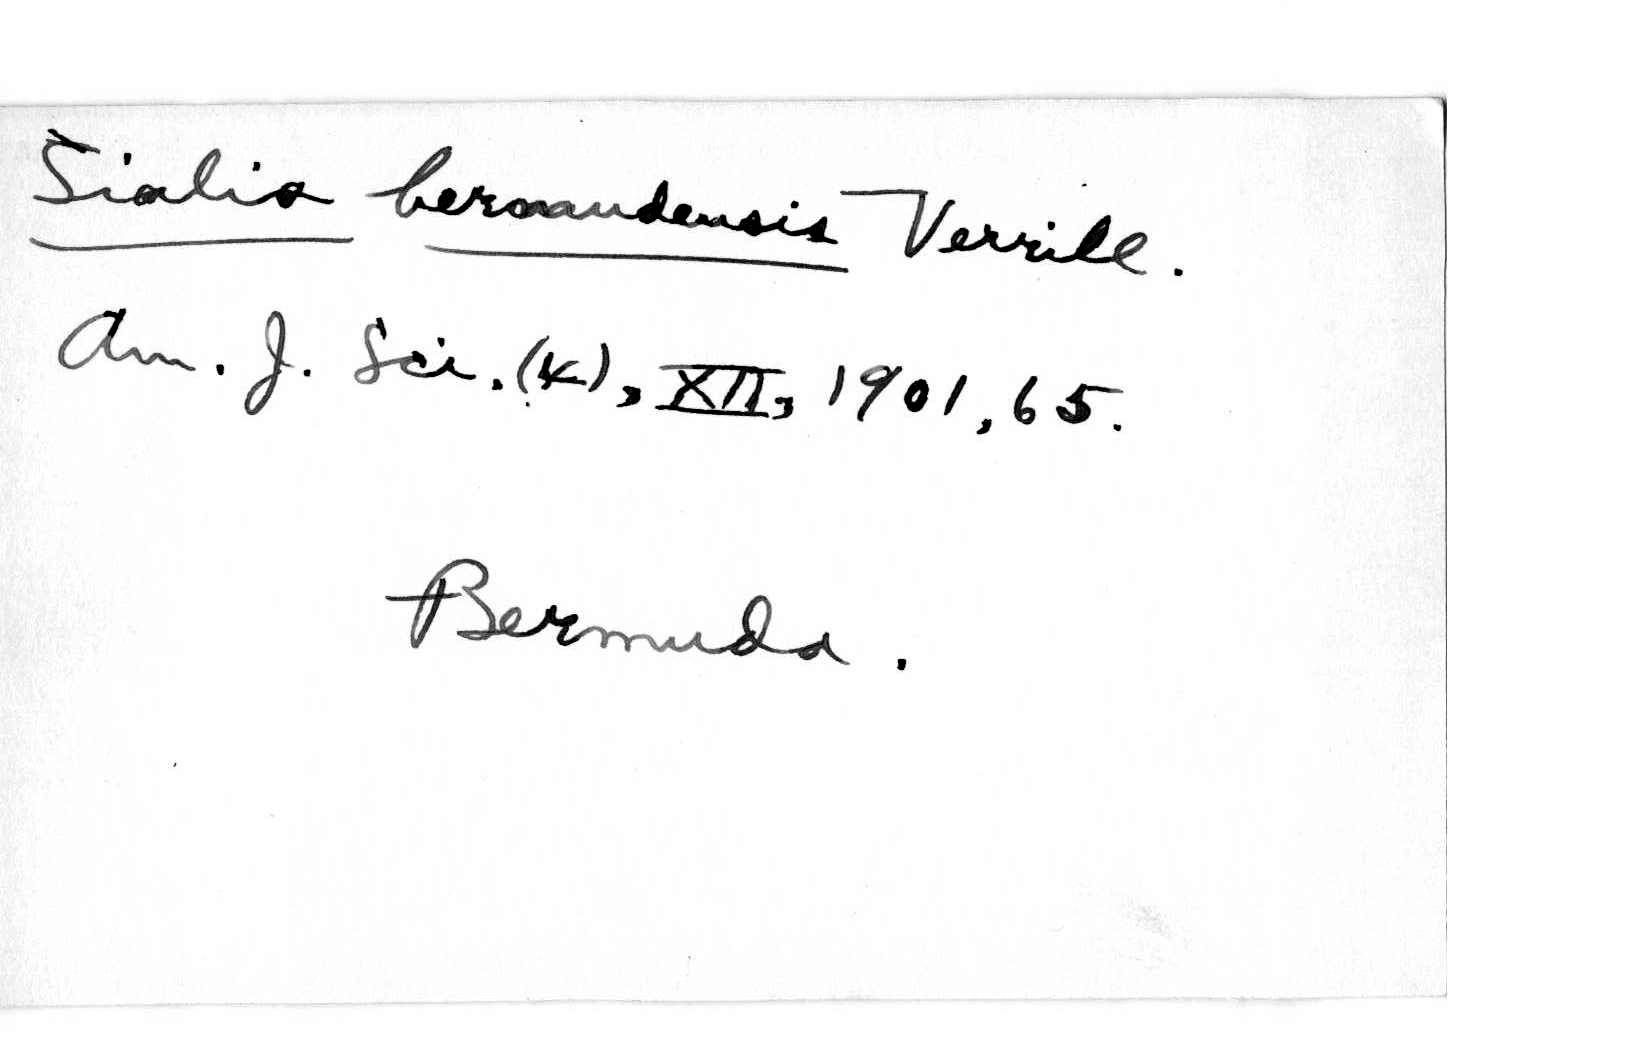 Sialia bermudensis Verrill.
Am. J. Sci. (4), XII, 1901, 65.
Bermuda.